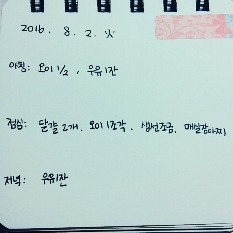 2016. 8. 2. 火
아침: 오이 1/2, 우유1잔
점심: 달걀 2개, 오이 1조각, 생선조금, 매실장아찌
저녁: 우유1잔